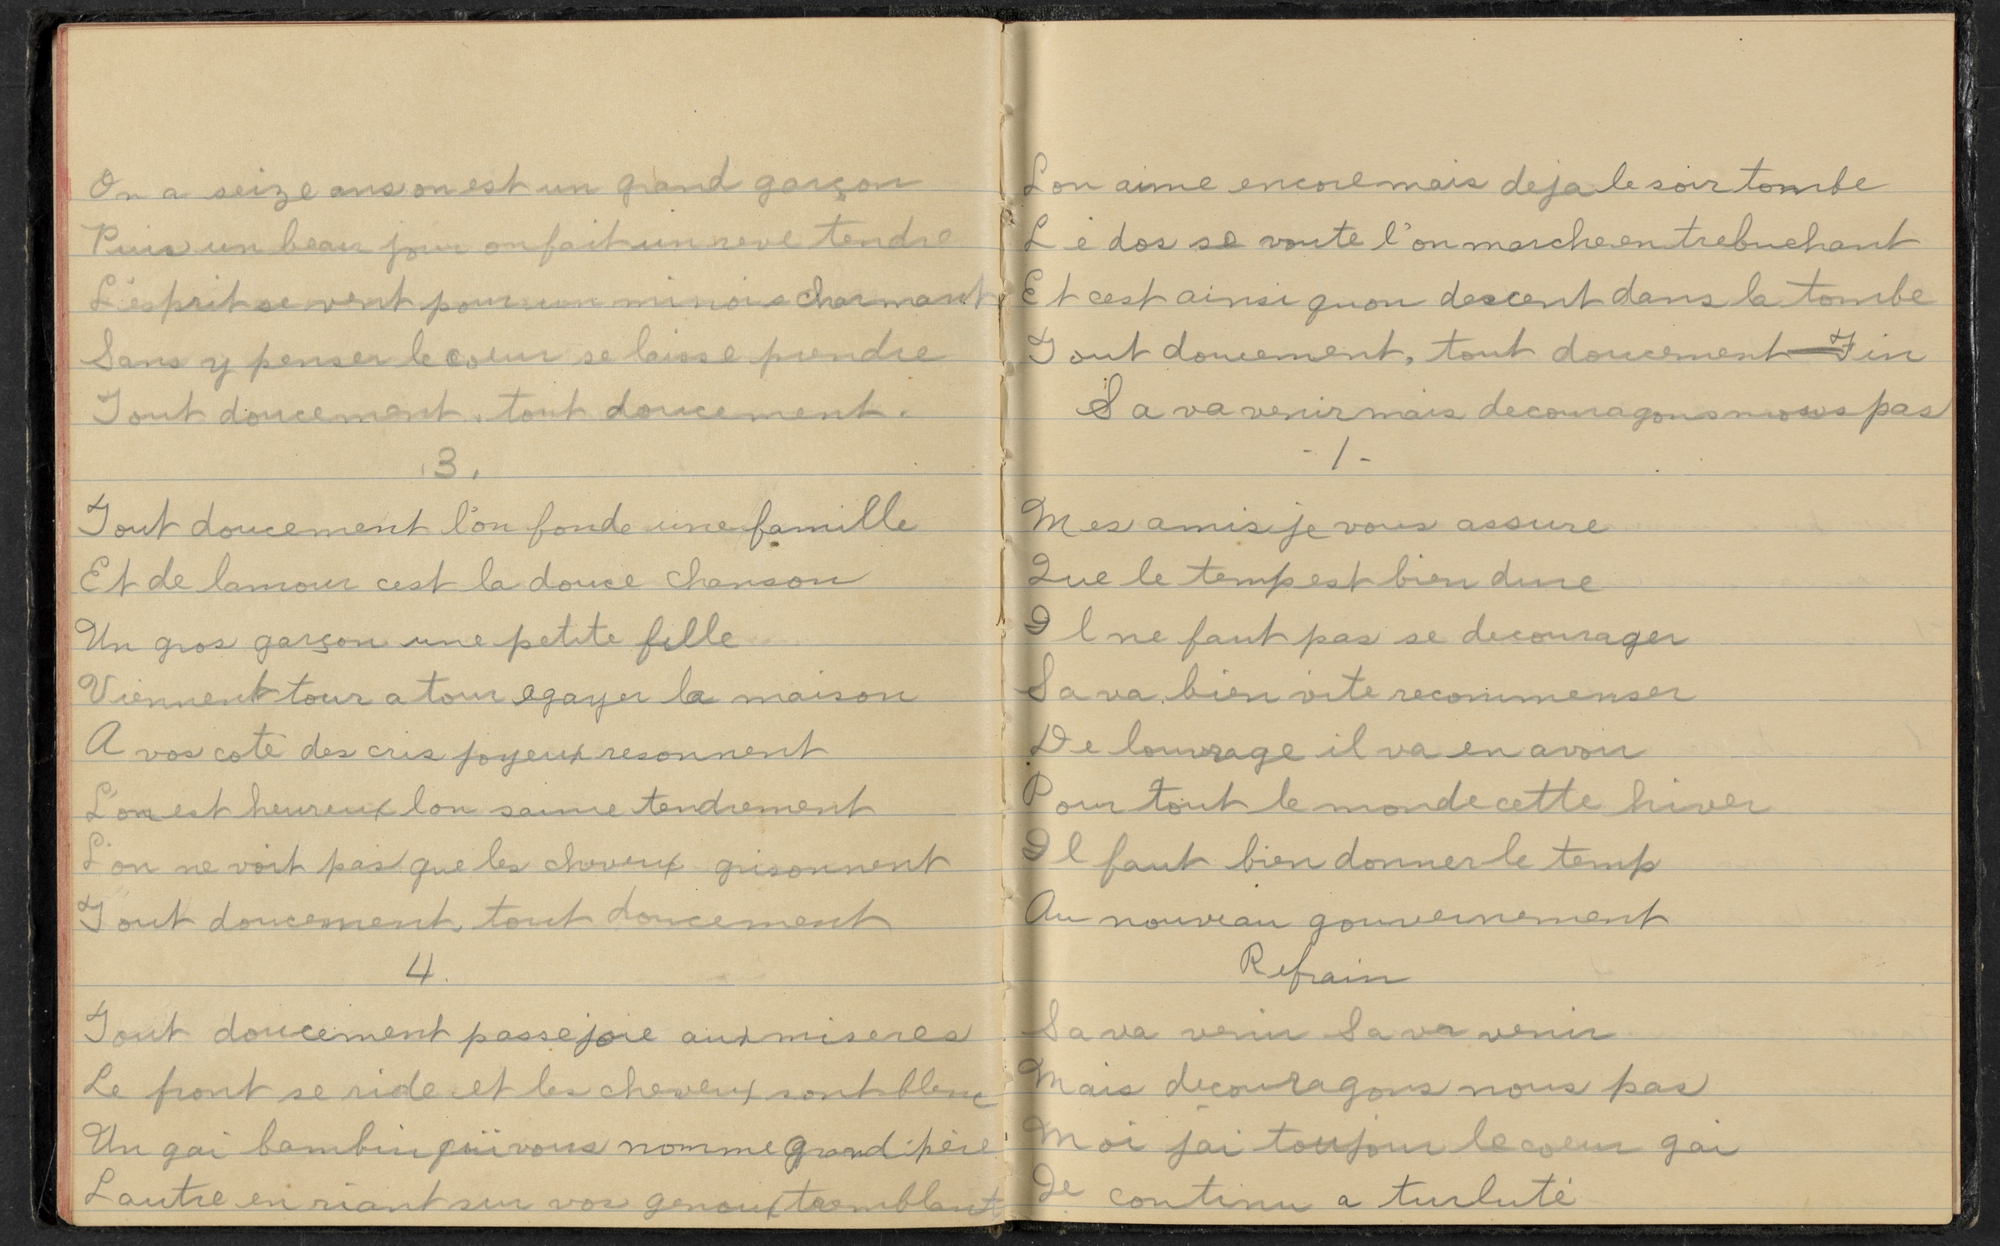 On a seize ans on est un grand garçon
Puis un beau jour on fait un reve tendre
L'esprit se vent pour un minois charmant
Sans y penser le coeur se laisse prendre
Tout doucement, tout doucement.
.3.
Tout doucement l'on fonde une famille
Et de lamour cest la douce chanson
Un gros garçon une petite fille
Viennent tour a tour egayer la maison
A vos coté des cris joyeux resonnent
L'on est heureux lon saime tendrement
L'on ne voit pas que les cheveux grisonnent
Tout doucement, tout doucement
4.
Tout doucement passe joie aux miseres
Le front se ride et les cheveux sont blenc
Un gai bambin qui vous nomme grand-père
Lautre en riant sur vos genoux tremblant
Lon aime encore mais deja le soir tombe
Le dos se voute l'on marche en trebuchant
Et cest ainsi quon descent dans la tombe
Tout doucement, tout doucement — Fin
Sa va venir mais decouragons nous pas
- 1 -
Mes amis je vous assure
Que le temp est bien dure
Il ne faut pas se decourager
Sa va bien vite recommenser
De louvrage il va en avoir
Pour tout le monde cette hiver
Il faut bien donner le temp
Au nouveau gouvernement
Refrain
Sa va venir Sa va venir
Mais decouragons nous pas
Moi j'ai toujour le coeur gai
Je continu a turluté